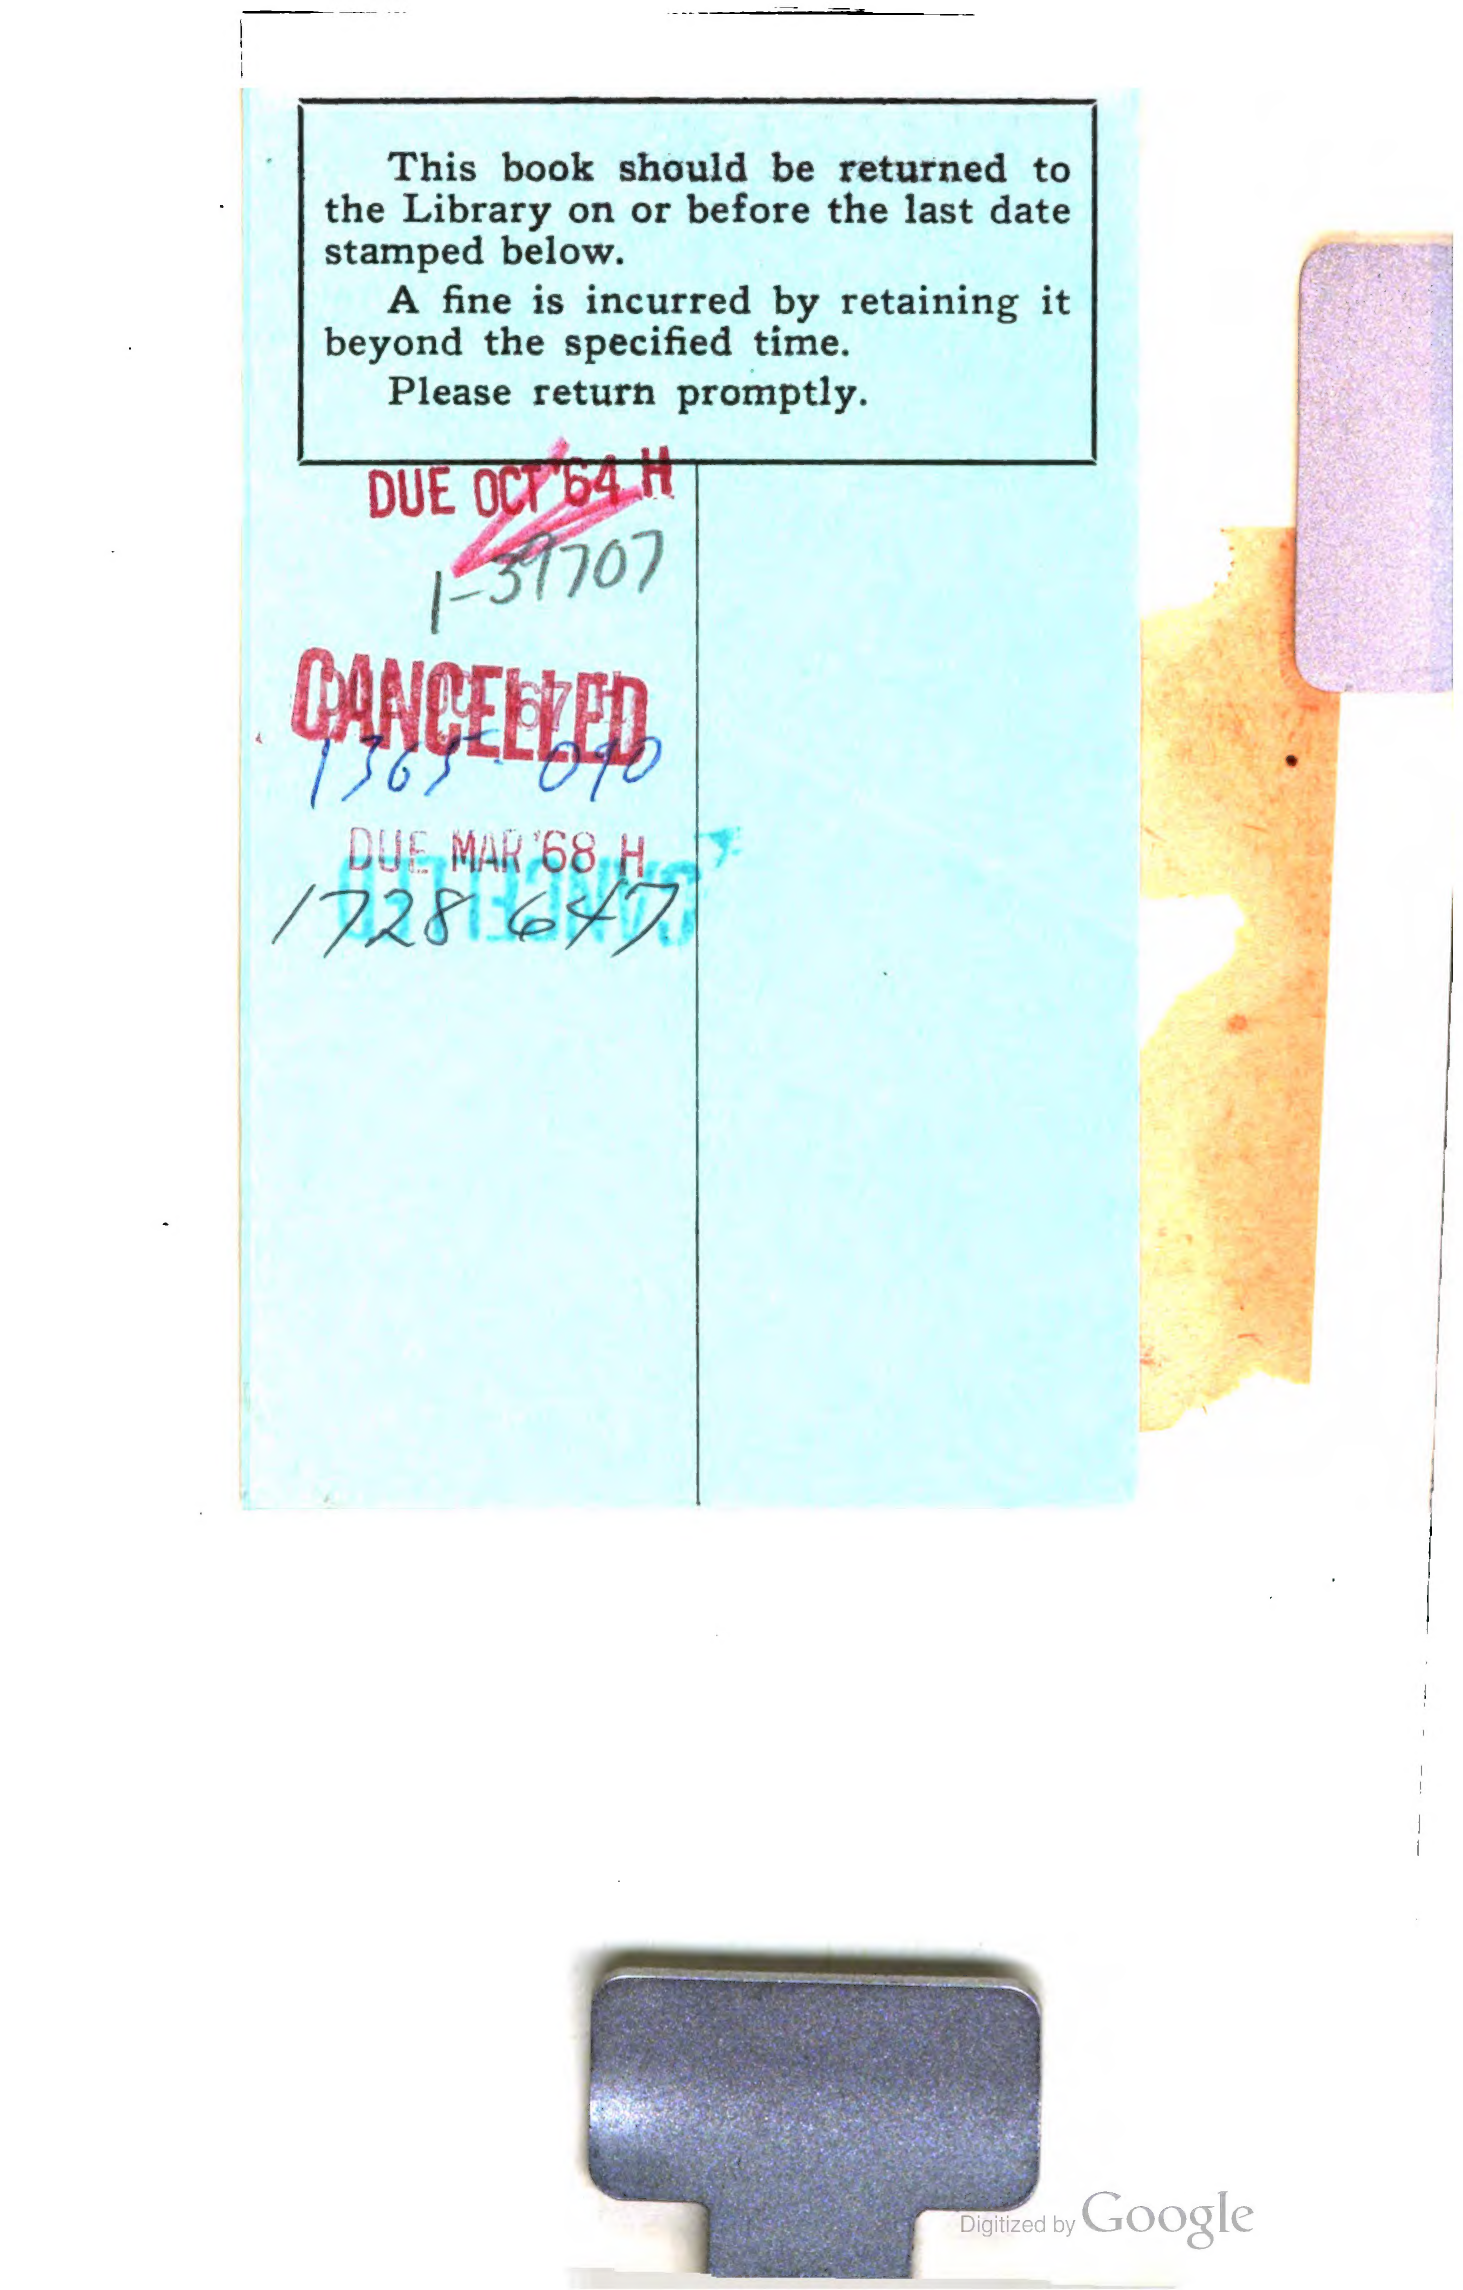 This book should be returned to
the Library on or before the last date
stamped below.
A fine is incurred by retaining it
beyond the specified time.
Please return promptly.
DUE OCT '64 H
1-39707
CANCELLED
1365-090
DUE MAR '68 H
CANCELLED
1728 647
Digitized by Google